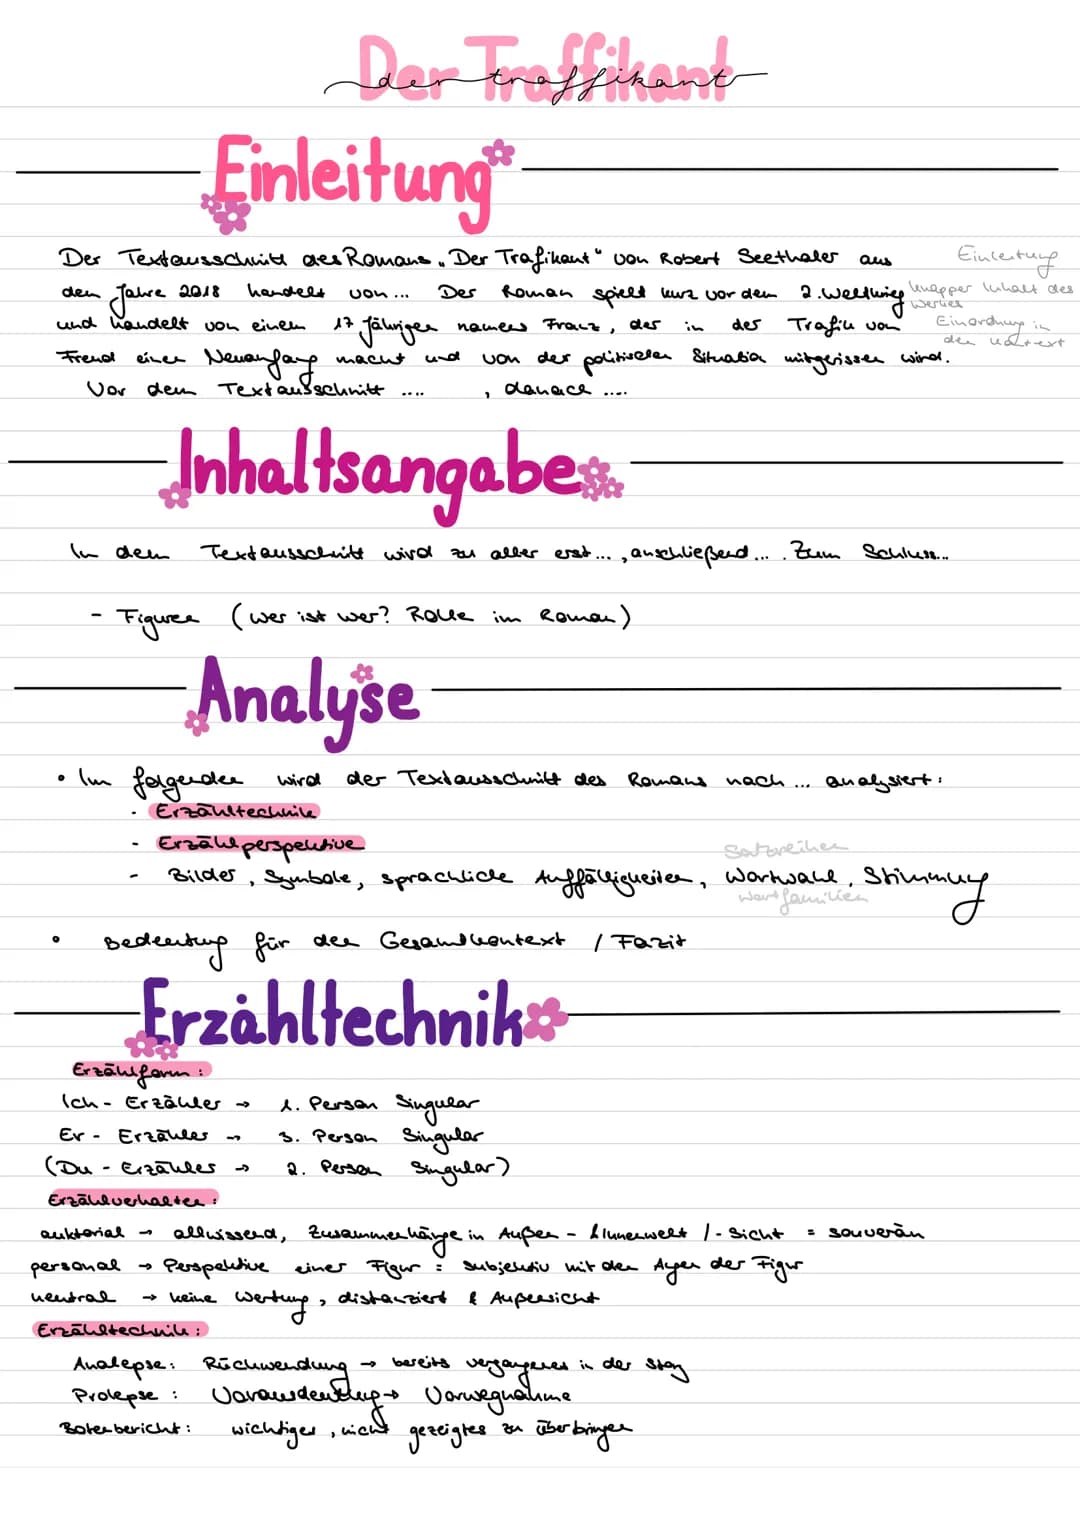 Der Traffikant
der traffikant
Einleitung
Der Textausschnitt des Romans „Der Trafikant" von Robert Seethaler aus Einleitung
dem Jahre 2018 handelt von... Der Roman spielt kurz vor dem 2. Weltkrieg knapper Inhalt des Werkes
und handelt von einem 17 Jährigen namens Franz, der in der Trafik von Einordnung in
Freud einen Neuanfang macht und von der politischen Situation mitgerissen wird. den Kontext
Vor dem Textausschnitt .... , danach ....
Inhaltsangabe
In dem Textausschnitt wird zu aller erst... , anschließend... . Zum Schluss...
- Figuren (wer ist wer? Rolle im Roman)
Analyse
• Im folgenden wird der Textausschnitt des Romans nach ... analysiert:
- Erzähltechnik
- Erzählperspektive
Satzreihen
- Bilder, Symbole, sprachliche Auffälligkeiten, Wortwahl, Stimmung
Wortfamilien
• Bedeutung für den Gesamtkontext / Fazit
Erzähltechnik
Erzählform:
Ich - Erzähler → 1. Person Singular
Er - Erzähler → 3. Person Singular
(Du - Erzähler → 2. Person Singular)
Erzählverhalten:
auktorial → allwissend, Zusammenhänge in Außen - & Innenwelt / - Sicht = souverän
personal → Perspektive einer Figur = subjektiv mit den Augen der Figur
neutral → keine Wertung, distanziert & Außensicht
Erzähltechnik:
Analepse: Rückwendung → bereits vergangenes in der Story
Prolepse : Vorausdeutung → Vorwegnahme
Botenbericht: wichtiges, nicht gezeigtes zu überbringen